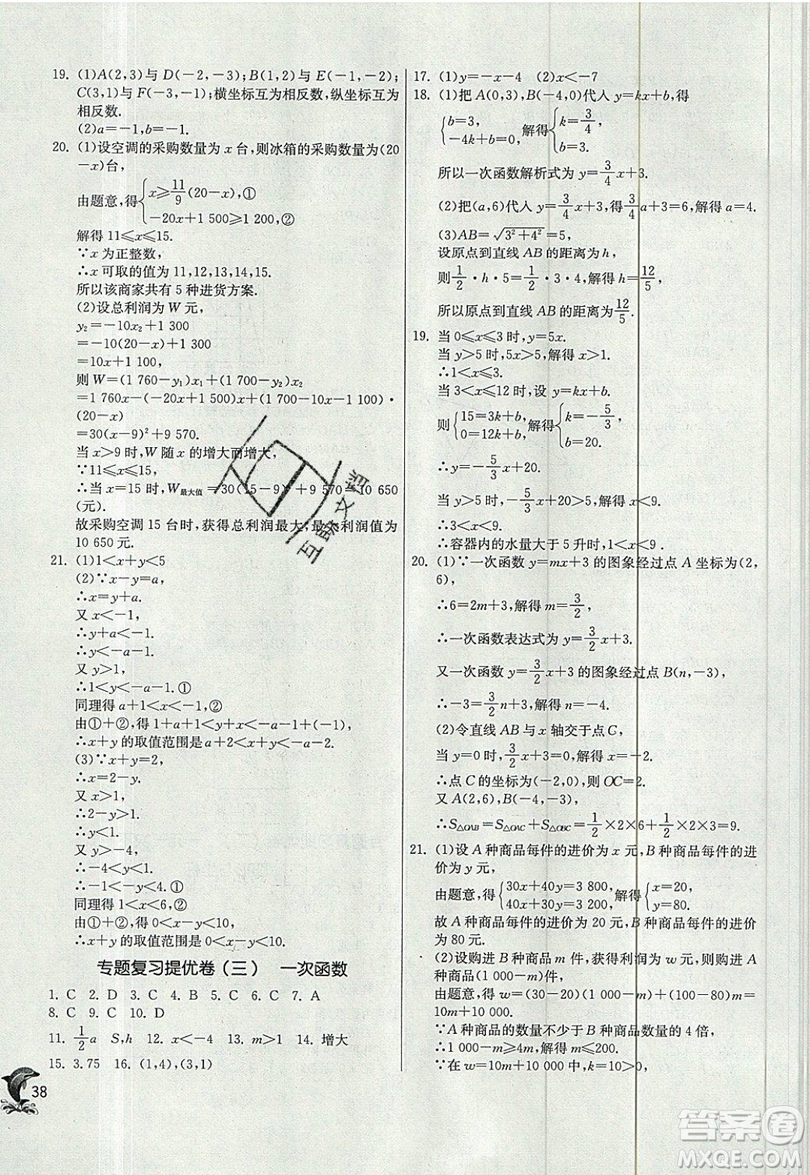 19. (1)A(2,3)与 D(-2,-3);B(1,2)与 E(-1,-2);
C(3,1)与 F(-3,-1);横坐标互为相反数,纵坐标互为
相反数.
(2)a=-1,b=-1.
20. (1)设空调的采购数量为 x 台,则冰箱的采购数量为(20
-x)台,
由题意,得{x≥11/9(20-x),①
-20x+1 500≥1 200,②
解得 11≤x≤15.
∵x 为正整数,
∴x 可取的值为 11,12,13,14,15.
所以该商家共有 5 种进货方案.
(2)设总利润为 W 元,
y₂=-10x₂+1 300
=-10(20-x)+1 300
=10x+1 100.
则 W=(1 760-y₁)x₁+(1 700-y₂)x₂
=1 760x-(-20x+1 500)x+(1 700-10x-1 100)·
(20-x)
=30(x-9)²+9 570.
当 x>9 时,W 随 x 的增大而增大,
∵11≤x≤15,
∴当 x=15 时,W最大值=30(15-9)²+9 570=10 650
(元).
故采购空调 15 台时,获得总利润最大,最大利润值为
10 650 元.
21. (1)1<x+y<5
(2)∵x-y=a,
∴x=y+a.
又 x<-1,
∴y+a<-1.
∴y<-a-1.
又 y>1,
∴1<y<-a-1.①
同理得 a+1<x<-1,②
由①+②,得 1+a+1<y+x<-a-1+(-1),
∴x+y 的取值范围是 a+2<x+y<-a-2.
(3)∵x+y=2,
∴x=2-y.
又 x>1,
∴2-y>1,
∴y<1.
又 y>-4,
∴-4<y<1.①
同理得 1<x<6,②
由①+②,得-4+1<y+x<1+6,
∴x+y 的取值范围是-3<x-y<10.
专题复习提优卷(三) 一次函数
1. C 2. D 3. D 4. D 5. C 6. C 7. A
8. C 9. C 10. D
11. 1/2a S,h 12. x<-4 13. m>1 14. 增大
15. 3.75 16. (1,4),(3,1)
38
17. (1)y=-x-4 (2)x<-7
18. (1)把 A(0,3),B(-4,0)代人 y=kx+b,得
{b=3,
-4k+b=0, 解得{k=3/4,
b=3.
所以一次函数解析式为 y=3/4x+3.
(2)把(a,6)代人 y=3/4x+3,得3/4a+3=6,解得 a=4.
(3)AB=√3²+4²=5,
设原点到直线 AB 的距离为 h,
则1/2·h·5=1/2·3·4,解得 h=12/5.
所以原点到直线 AB 的距离为12/5.
19. 当 0≤x≤3 时,y=5x.
当 y>5 时,5x>5,解得 x>1.
∴1<x≤3.
当 3<x≤12 时,设 y=kx+b.
则{15=3k+b,
0=12k+b, 解得{k=-5/3,
b=20.
∴y=-5/3x+20.
当 y>5 时,-5/3x+20>5,解得 x<9.
∴3<x<9.
∴容器内的水量大于 5 升时,1<x<9 .
20. (1)∵一次函数 y=mx+3 的图象经过点 A 坐标为(2,
6),
∴6=2m+3,解得 m=3/2,
∴一次函数表达式为 y=3/2x+3.
又一次函数 y=3/2x+3 的图象经过点 B(n,-3),
∴-3=3/2n+3,解得 n=-4.
(2)令直线 AB 与 x 轴交于点 C,
当 y=0 时,3/2x+3=0,解得 x=-2.
∴点 C 的坐标为(-2,0),则 OC=2.
又 A(2,6),B(-4,-3),
∴S△OAB=S△OAC+S△OBC=1/2×2×6+1/2×2×3=9.
21. (1)设 A 种商品每件的进价为 x 元,B 种商品每件的进
价为 y 元,
由题意,得{30x+40y=3 800,
40x+30y=3 200, 解得{x=20,
y=80.
故 A 种商品每件的进价为 20 元,B 种商品每件的进价
为 80 元.
(2)设购进 B 种商品 m 件,获得利润为 w 元,则购进
A 种商品(1 000-m)件,
由题意,得 w=(30-20)(1 000-m)+(100-80)m=
10m+10 000.
∵A 种商品的数量不少于 B 种商品数量的 4 倍,
∴1 000-m≥4m,解得 m≤200.
∵在 w=10m+10 000 中,k=10>0,
互助文档
答案圈
MXQE.COM